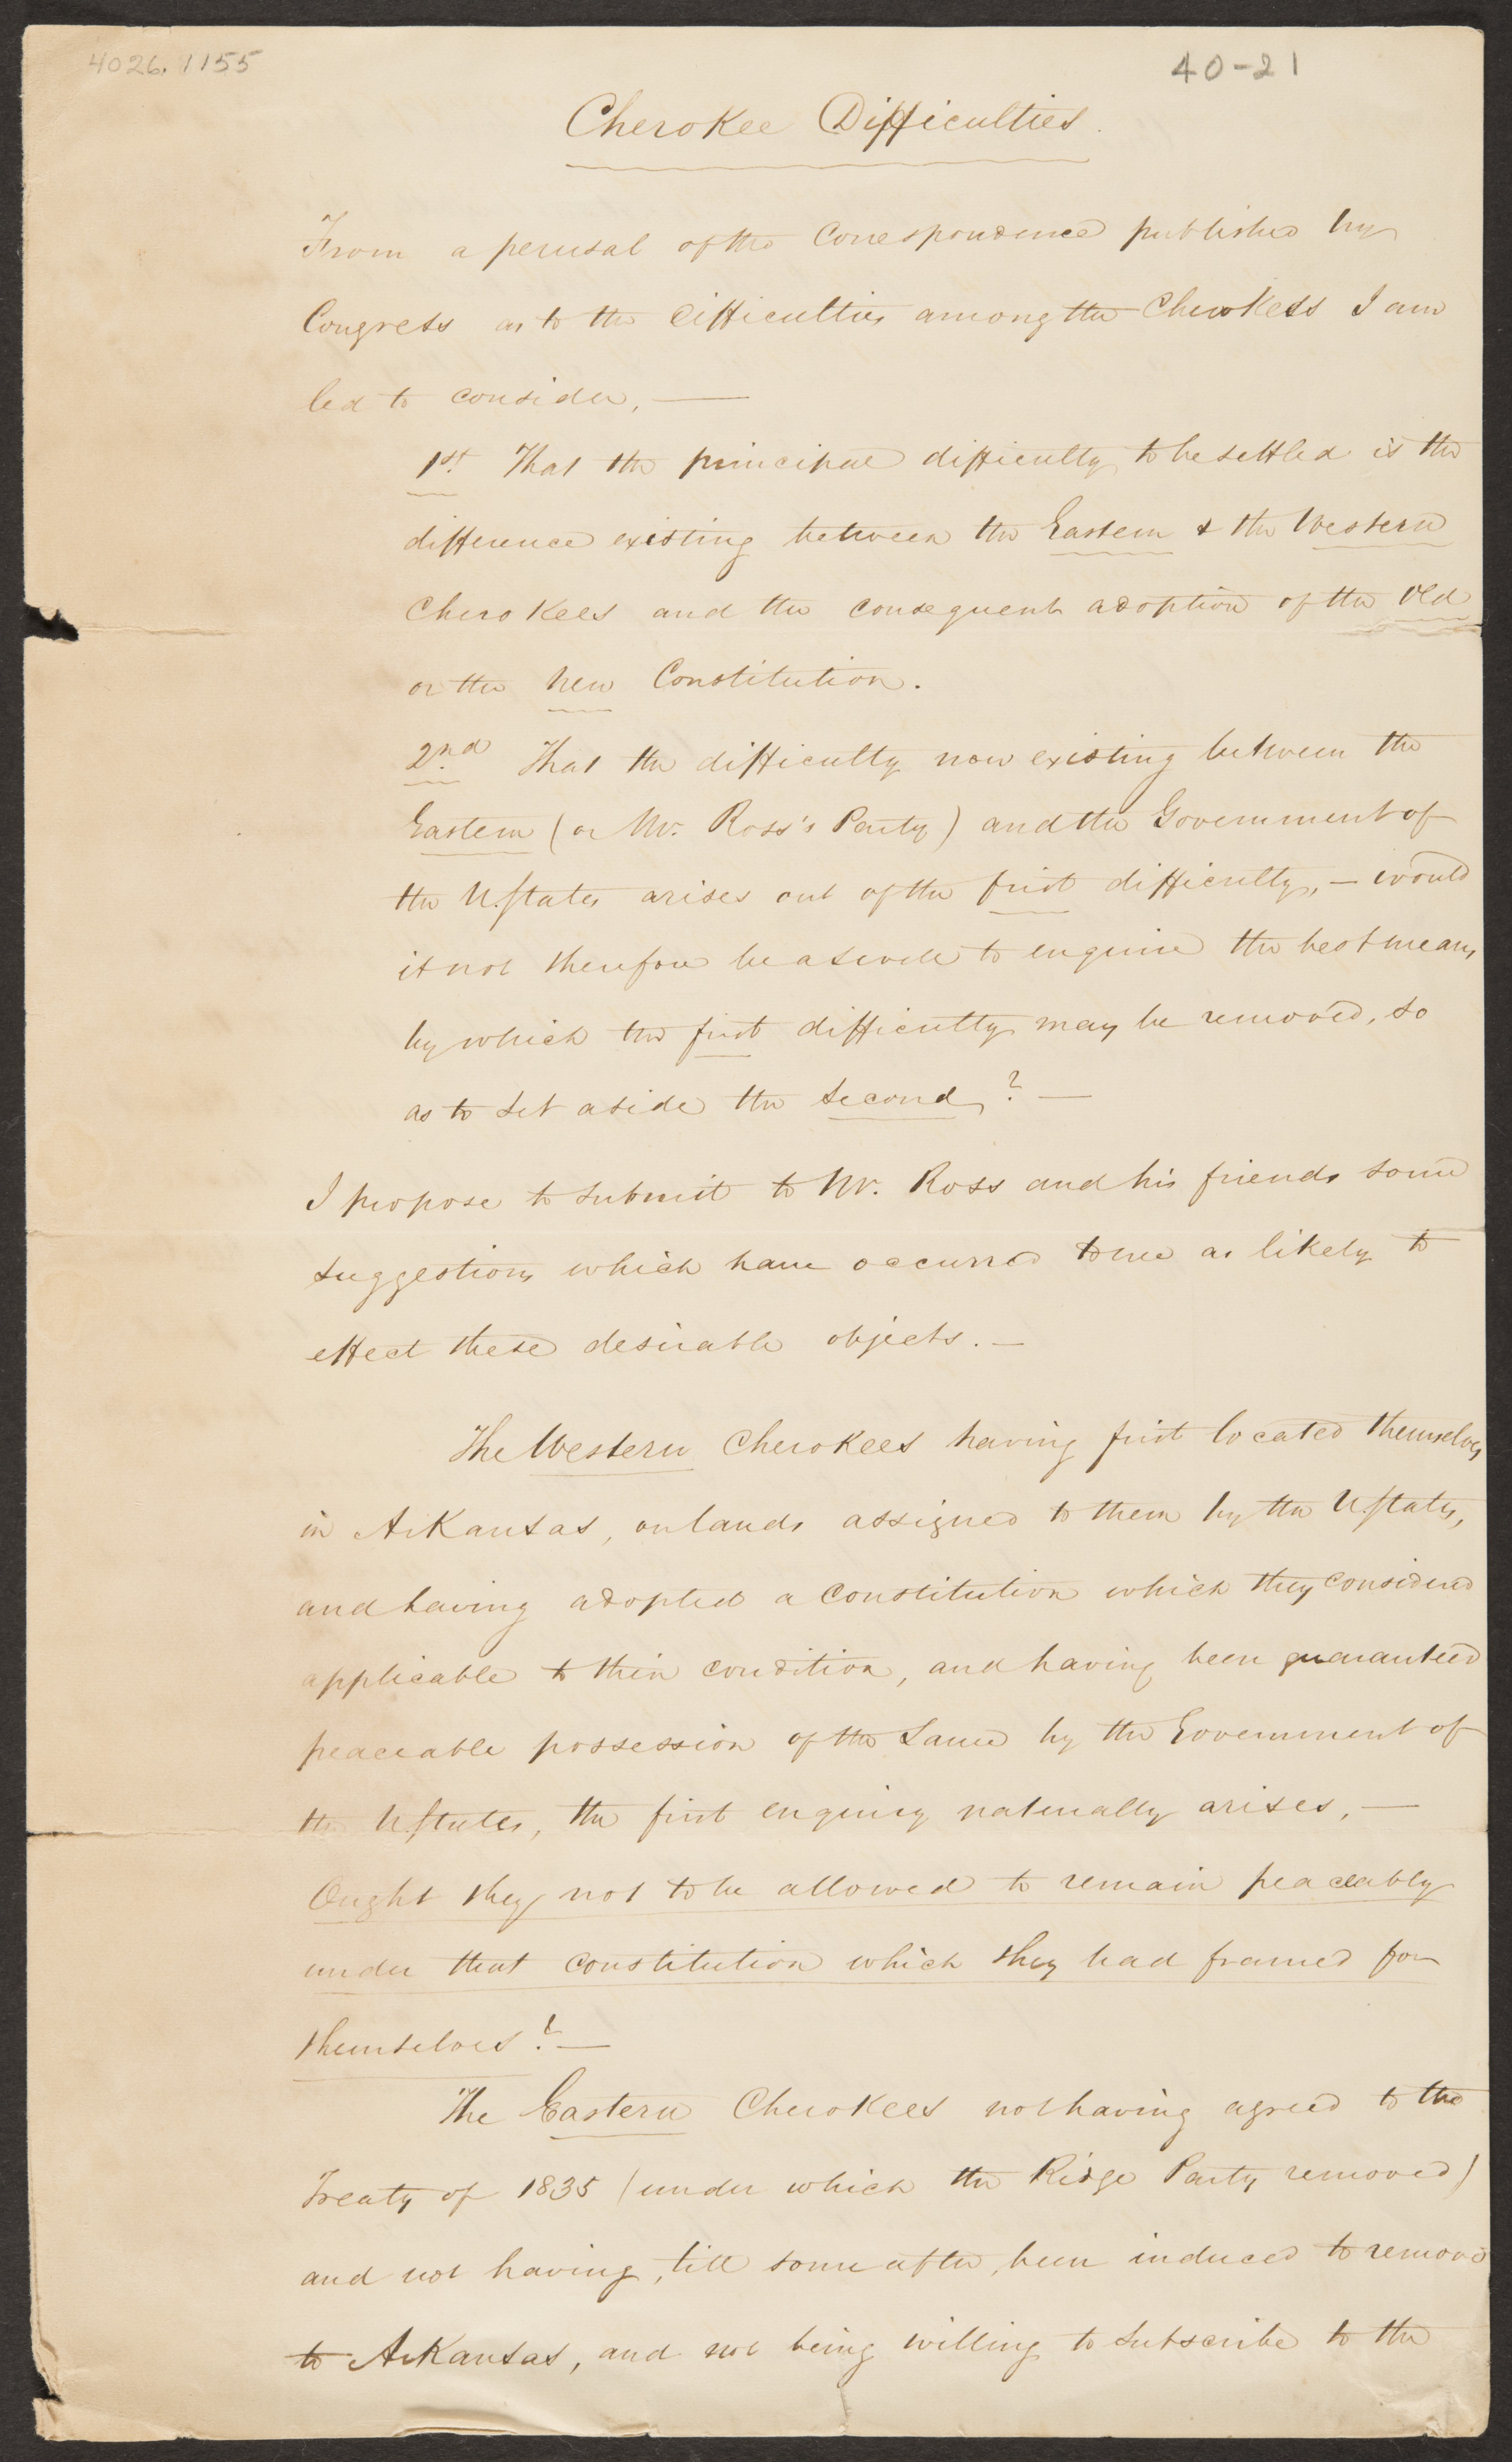 4026.1155
40-21
Cherokee Difficulties.
From a perusal of the Correspondence published by
Congress as to the difficulties among the Cherokees I am
led to consider, —
1st. That the principal difficulty to be settled is the
difference existing between the Eastern & the Western
Cherokees and the consequent adoption of the Old
or the New Constitution.
2nd That the difficulty now existing between the
Eastern (or Mr. Ross's Party) and the Government of
the U. States arises out of the first difficulty, — would
it not therefore be as well to enquire the best means
by which the first difficulty may be removed, so
as to set aside the second? —
I propose to submit to Mr. Ross and his friends some
suggestions which have occurred to me as likely to
effect these desirable objects. —
The Western Cherokees having first located themselves
in Arkansas, on lands assigned to them by the U. States,
and having adopted a Constitution which they considered
applicable to their condition, and having been guaranteed
peaceable possession of the same by the Government of
the U. States, the first enquiry naturally arises, —
Ought they not to be allowed to remain peaceably
under that constitution which they had framed for
themselves? —
The Eastern Cherokees not having agreed to the
Treaty of 1835 (under which the Ridge Party removed)
and not having, till some after, been induced to remove
to Arkansas, and not being willing to subscribe to the